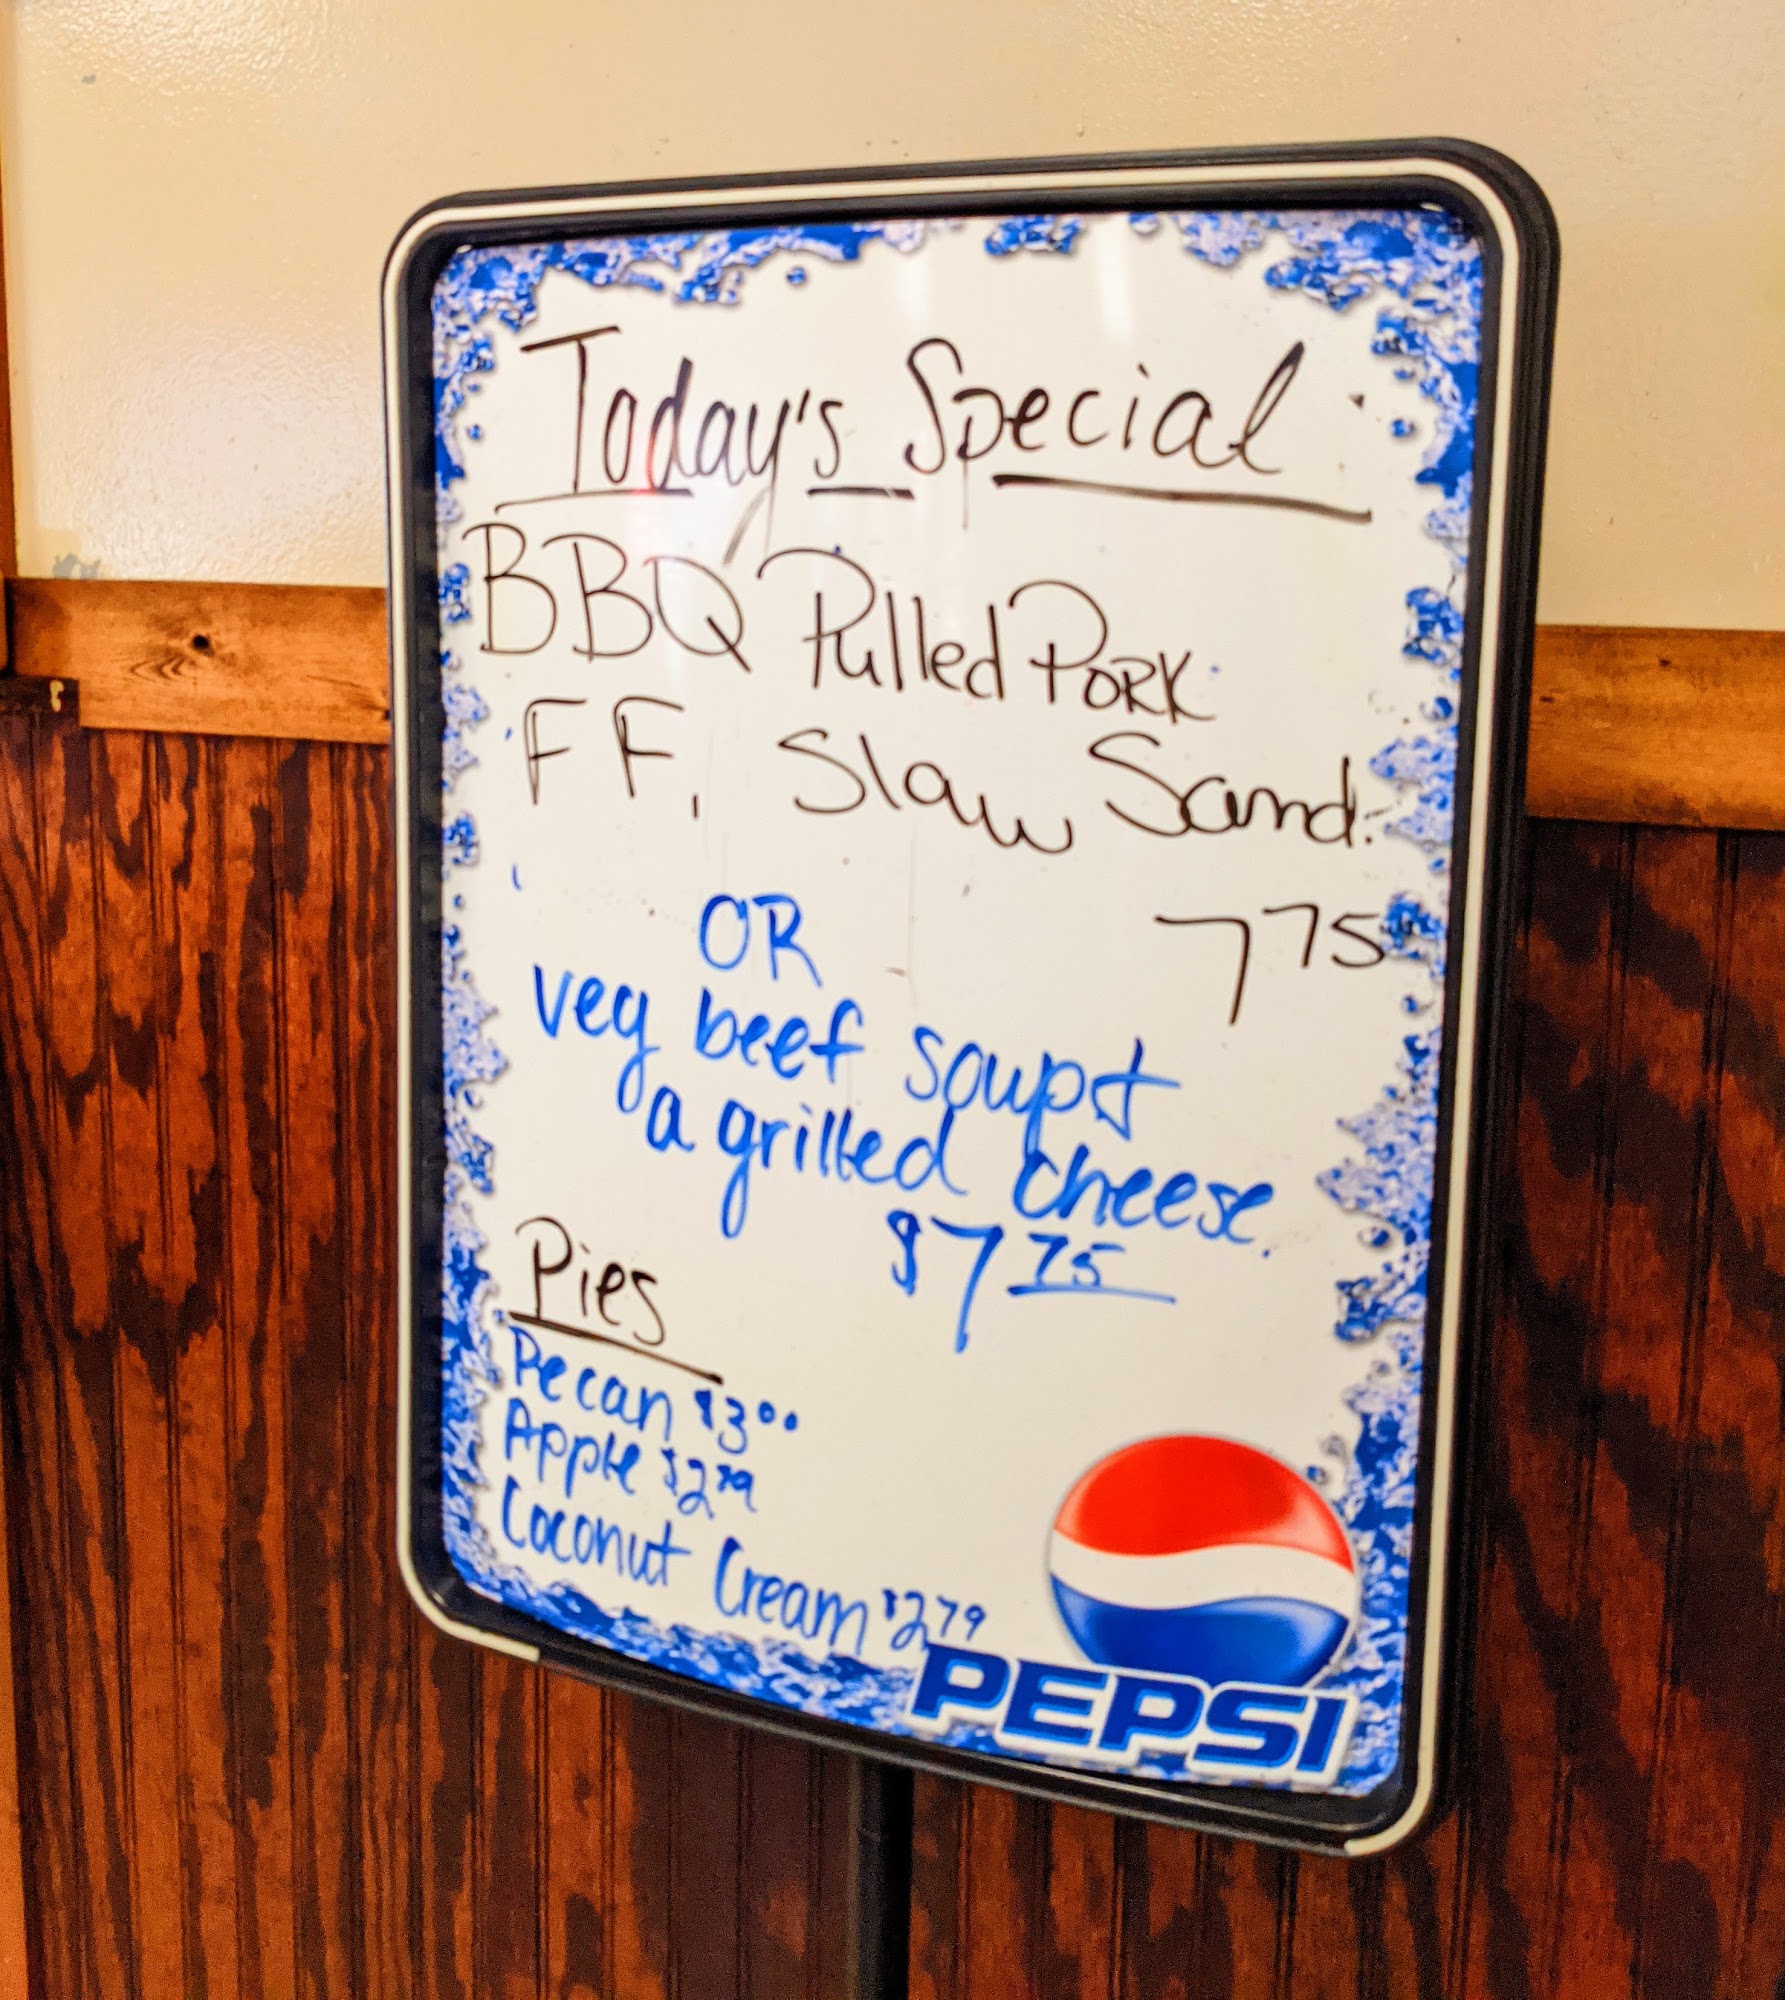 Today's Special
BBQ Pulled PORK
FF, Slaw Sand.
7 75
OR
veg beef soup &
a grilled cheese.
$7 75
Pies
Pecan $3 00
Apple $2 79
Coconut Cream $2 79
PEPSI